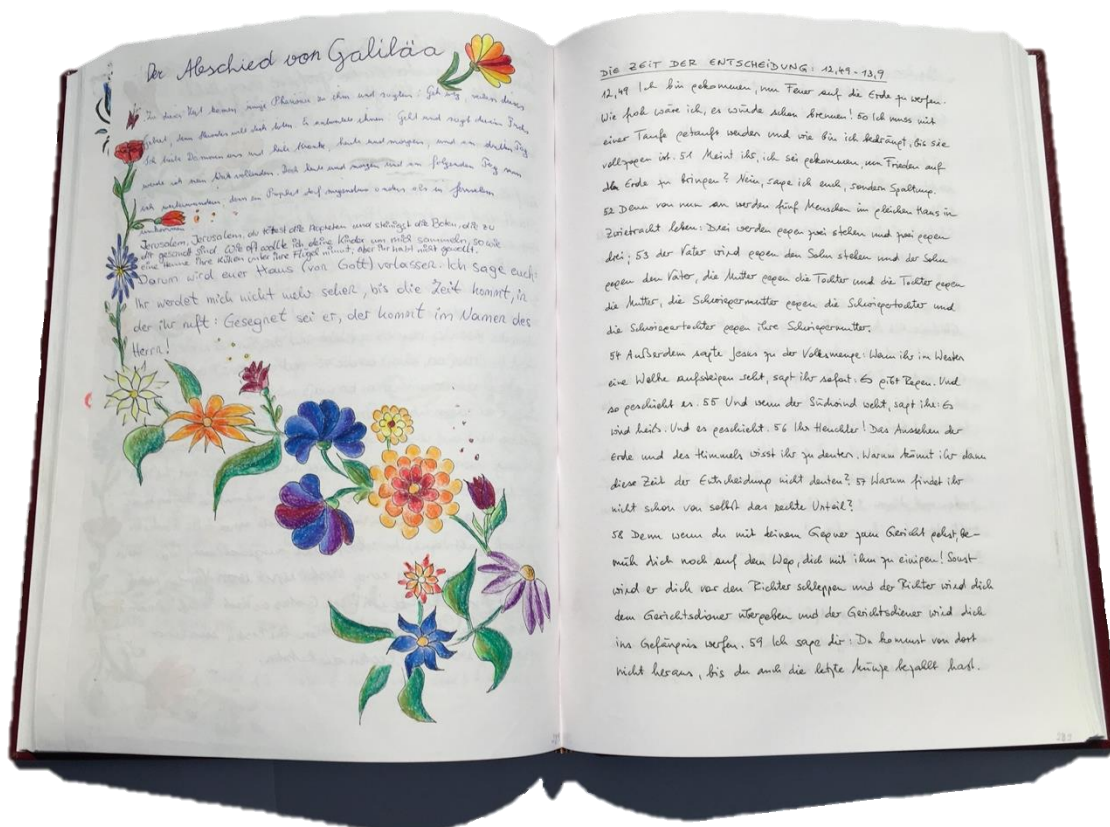 Der Abschied von Galiläa
In dieser Zeit kamen einige Pharisäer zu ihm und sagten: Geh weg, verlass dieses
Gebiet, denn Herodes will dich töten. Er antwortete ihnen: Geht und sagt diesem Fuchs
Ich treibe Dämonen aus und heile Kranke, heute und morgen, und am dritten Tag
werde ich mein Werk vollenden. Doch heute und morgen und am folgenden Tag muss
ich weiterwandern, denn ein Prophet darf nirgendwo anders als in Jerusalem
umkommen.
Jerusalem, Jerusalem, du tötest die Propheten und steinigst die Boten, die zu
dir gesandt sind. Wie oft wollte ich deine Kinder um mich sammeln, so wie
eine Henne ihre Küken unter ihre Flügel nimmt. Aber ihr habt nicht gewollt.
Darum wird euer Haus (von Gott) verlassen. Ich sage euch:
Ihr werdet mich nicht mehr sehen, bis die Zeit kommt, in
der ihr ruft: Gesegnet sei er, der kommt im Namen des
Herrn!
DIE ZEIT DER ENTSCHEIDUNG: 12,49-13,9
12,49 Ich bin gekommen, um Feuer auf die Erde zu werfen.
Wie froh wäre ich, es würde schon brennen! 50 Ich muss mit
einer Taufe getauft werden und wie bin ich bedrängt, bis sie
vollzogen ist. 51 Meint ihr, ich sei gekommen, um Frieden auf
die Erde zu bringen? Nein, sage ich euch, sondern Spaltung.
52 Denn von nun an werden fünf Menschen im gleichen Haus in
Zwietracht leben: Drei werden gegen zwei stehen und zwei gegen
drei; 53 der Vater wird gegen den Sohn stehen und der Sohn
gegen den Vater, die Mutter gegen die Tochter und die Tochter gegen
die Mutter, die Schwiegermutter gegen die Schwiegertochter und
die Schwiegertochter gegen ihre Schwiegermutter.
54 Außerdem sagte Jesus zu der Volksmenge: Wenn ihr im Westen
eine Wolke aufsteigen seht, sagt ihr sofort: Es gibt Regen. Und
so geschieht es. 55 Und wenn der Südwind weht, sagt ihr: Es
wird heiß. Und es geschieht. 56 Ihr Heuchler! Das Aussehen der
Erde und des Himmels wisst ihr zu deuten. Warum könnt ihr dann
diese Zeit der Entscheidung nicht deuten? 57 Warum findet ihr
nicht schon von selbst das rechte Urteil?
58 Denn wenn du mit deinem Gegner zum Gericht gehst, be-
müh dich noch auf dem Weg, dich mit ihm zu einigen! Sonst
wird er dich vor den Richter schleppen und der Richter wird dich
dem Gerichtsdiener übergeben und der Gerichtsdiener wird dich
ins Gefängnis werfen. 59 Ich sage dir: Du kommst von dort
nicht heraus, bis du auch die letzte Münze bezahlt hast.